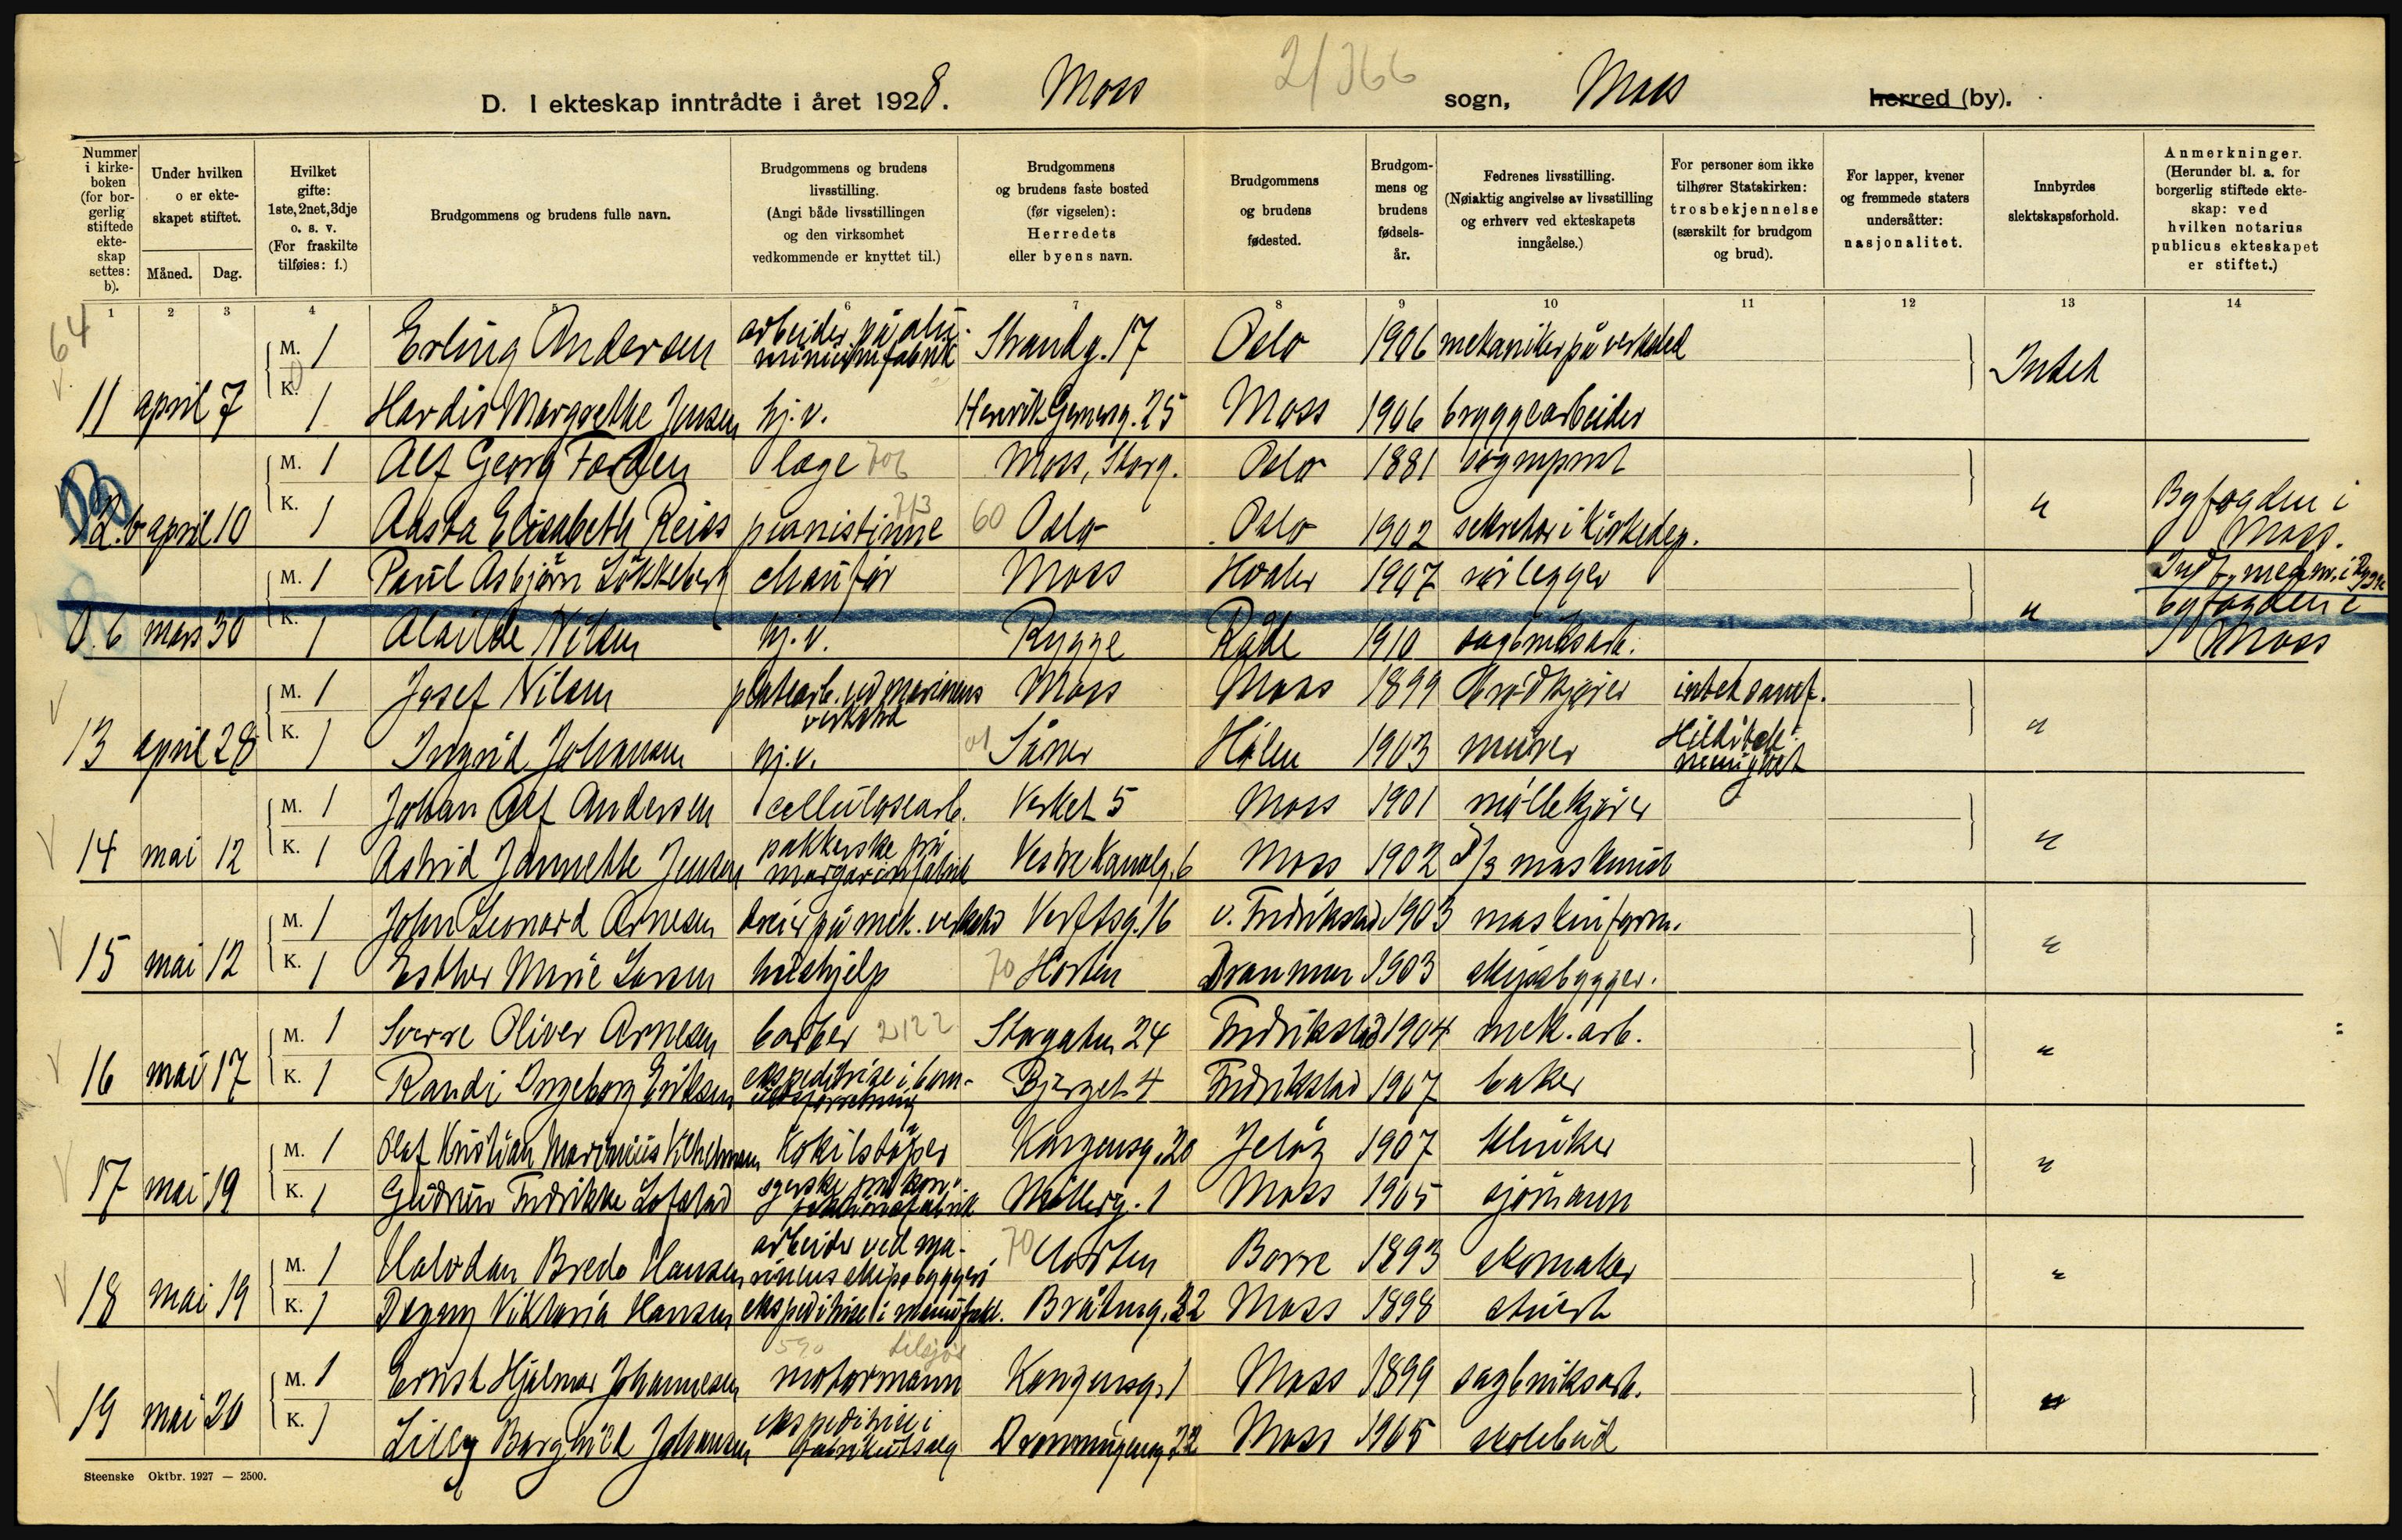 D. I ekteskap inntrådte i året 1928. Moss sogn, Moss herred (by).
2/366
Nummer i kirkeboken (for borgerlig stiftede ekteskap settes: b).
Under hvilken o er ekteskapet stiftet.
Måned. Dag.
Hvilket gifte: 1ste, 2net, 3dje o. s. v. (For fraskilte tilføies: f.)
Brudgommens og brudens fulle navn.
Brudgommens og brudens livsstilling. (Angi både livsstillingen og den virksomhet vedkommende er knyttet til.)
Brudgommens og brudens faste bosted (før vigselen): Herredets eller byens navn.
Brudgommens og brudens fødested.
Brudgommens og brudens fødselsår.
Fedrenes livsstilling. (Nøiaktig angivelse av livsstilling og erhverv ved ekteskapets inngåelse.)
For personer som ikke tilhører Statskirken: trosbekjennelse (særskilt for brudgom og brud).
For lapper, kvener og fremmede staters undersåtter: nasjonalitet.
Innbyrdes slektskapsforhold.
Anmerkninger. (Herunder bl. a. for borgerlig stiftede ekteskap: ved hvilken notarius publicus ekteskapet er stiftet.)
1 2 3 4 5 6 7 8 9 10 11 12 13 14
64
M. 1 Erling Andersen arbeider på aluminiumfabrik Strandg. 17 Oslo 1906 mekaniker på verksted Intet
11 april 7 K. 1 Hardis Margrethe Jensen hj.v. Henrik Gernersg. 25 Moss 1906 bryggearbeider
M. 1 Alf Georg læge Moss, Storg. Oslo 1881 sogneprest
2. b april 10 K. 1 Aasta Elisabeth Reiss pianistinne 60 Oslo Oslo 1902 sekretær i Kirkedep. " Byfogden i Moss.
M. 1 Paul Asbjørn Løkkeberg chauffør Moss Hvaler 1907 rørlegger
b mars 30 K. 1 Alvilde Nilsen hj.v. Rygge Råde 1910 sagbruksarb. " byfogden i Moss
M. 1 Josef Nilsen platearb. ved marinens verksted Moss Moss 1899 brødkjører intet samf.
13 april 28 K. 1 Ingrid Johansen hj.v. Såner Hølen 1903 murer menighet "
M. 1 Johan Alf Andersen cellulosearb. Verket 5 Moss 1901 møllekjører
14 mai 12 K. 1 Astrid Jannette Jensen pakkerske på margarinfabrik Vestre Kanalg. 6 Moss 1902 d/s maskinist "
M. 1 John Leonard Arnesen dreier på mek. verksted Verftsg. 16 v. Fredrikstad 1903 maskinform.
15 mai 12 K. 1 Esther Marie Larsen hushjelp 70 Horten Drammen 1903 skipsbygger. "
M. 1 Sverre Oliver Arnesen barber 2122 Storgaten 24 Fredrikstad 1904 mek. arb.
16 mai 17 K. 1 Randi Ingeborg Eriksen ekspeditrise i Bjerget 4 Fredrikstad 1907 baker "
M. 1 Olaf Kristian Marinius Vilhelmsen Kokilstøper Kongensg. 20 Jeløy 1907 klinker
17 mai 19 K. 1 Gudrun Fredrikke Lofstad syerske på konfeksjonsfabrik Møllerg. 1 Moss 1905 sjømann "
M. 1 Halvdan Bredo Hansen arbeider ved marinens skipsbyggeri 70 Horten Borre 1893 skomaker
18 mai 19 K. 1 Dagny Viktoria Hansen ekspeditrise i manufakt. Bråteng. 32 Moss 1898 stuert "
M. 1 Ernst Hjalmar Johannesen motormann Kongensg. 1 Moss 1899 sagbruksarb.
19 mai 20 K. 1 Lilly Borghild Johansen ekspeditrise i fabrikutsalg Dronningensg. 22 Moss 1905 skolebud "
Steenske Oktbr. 1927 — 2500.